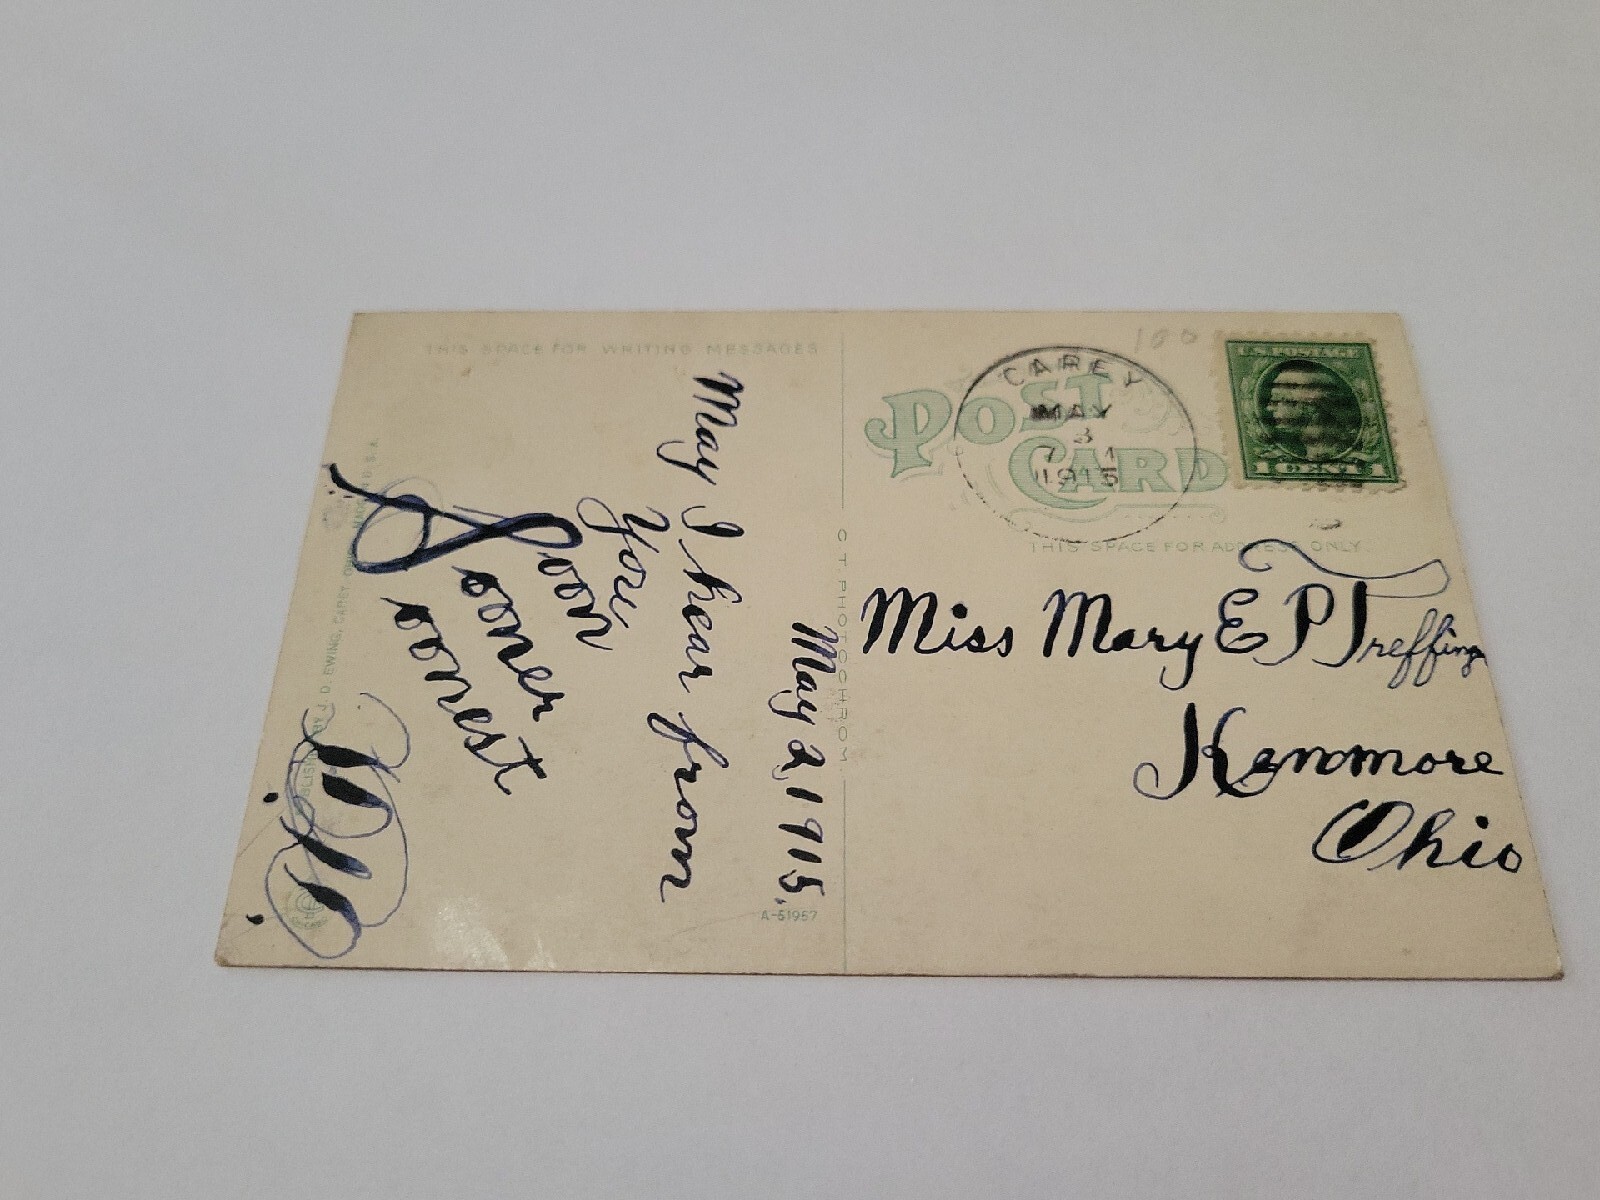 THIS SPACE FOR WRITING MESSAGES
May 2, 1915.
May I hear from
You
Soon
ooner
oonest
POST CARD
CAREY
MAY
3
1915
100
U.S. POSTAGE
1 CENT 1
THIS SPACE FOR ADDRESS ONLY.
Miss Mary E P Treffing
Kenmore
Ohio
C. T. PHOTOCHROM.
A-51957
BY J. D. EWING, CAREY, OHIO
MADE IN U.S.A.